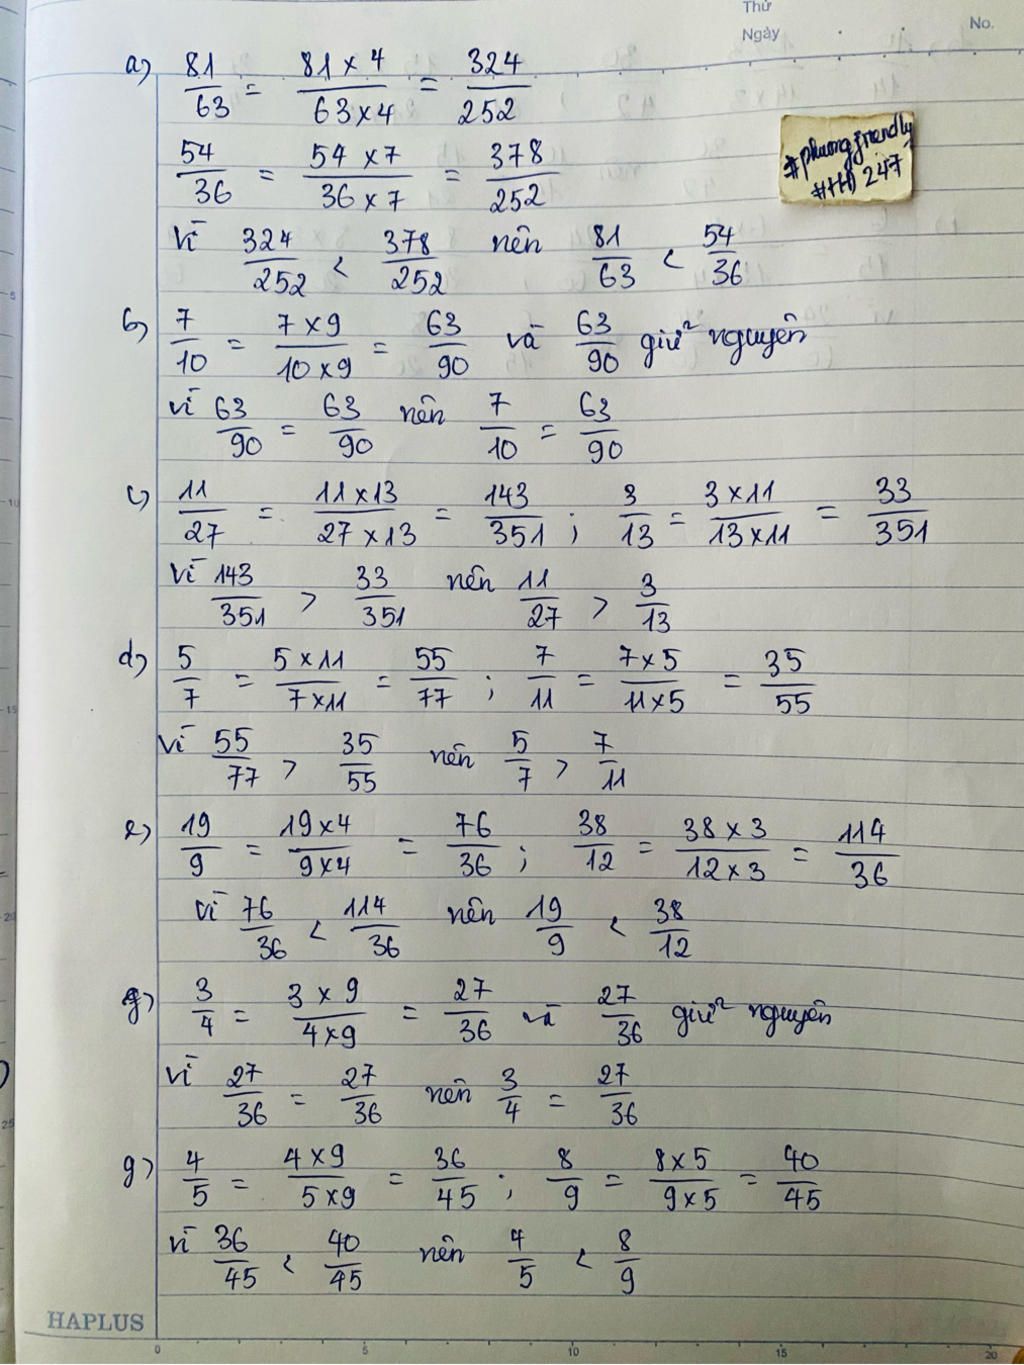 Thứ
Ngày
No.
a) 81/63 = 81 x 4/63 x 4 = 324/252
54/36 = 54 x 7/36 x 7 = 378/252
#phuongfriendly
#HĐ 247
Vì 324/252 < 378/252 nên 81/63 < 54/36
b) 7/10 = 7 x 9/10 x 9 = 63/90 và 63/90 giữ nguyên
Vì 63/90 = 63/90 nên 7/10 = 63/90
c) 11/27 = 11 x 13/27 x 13 = 143/351 ; 3/13 = 3 x 11/13 x 11 = 33/351
Vì 143/351 > 33/351 nên 11/27 > 3/13
d) 5/7 = 5 x 11/7 x 11 = 55/77 ; 7/11 = 7 x 5/11 x 5 = 35/55
Vì 55/77 > 35/55 nên 5/7 > 7/11
e) 19/9 = 19 x 4/9 x 4 = 76/36 ; 38/12 = 38 x 3/12 x 3 = 114/36
Vì 76/36 < 114/36 nên 19/9 < 38/12
g) 3/4 = 3 x 9/4 x 9 = 27/36 và 27/36 giữ nguyên
Vì 27/36 = 27/36 nên 3/4 = 27/36
g) 4/5 = 4 x 9/5 x 9 = 36/45 ; 8/9 = 8 x 5/9 x 5 = 40/45
Vì 36/45 < 40/45 nên 4/5 < 8/9
HAPLUS
0 5 10 15 20